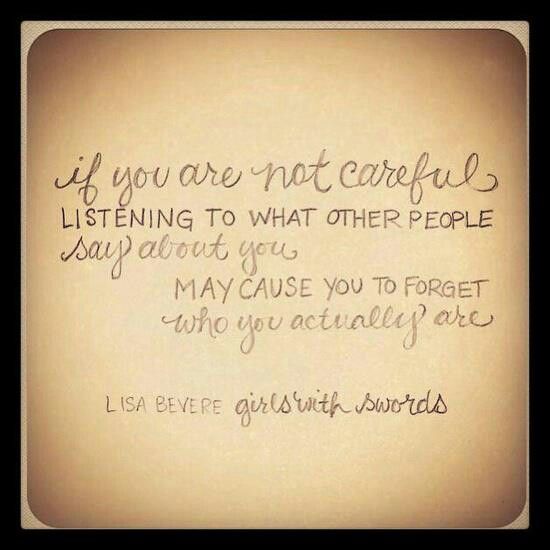 if you are not careful
LISTENING TO WHAT OTHER PEOPLE
say about you
MAY CAUSE YOU TO FORGET
who you actually are
LISA BEVERE girls with swords